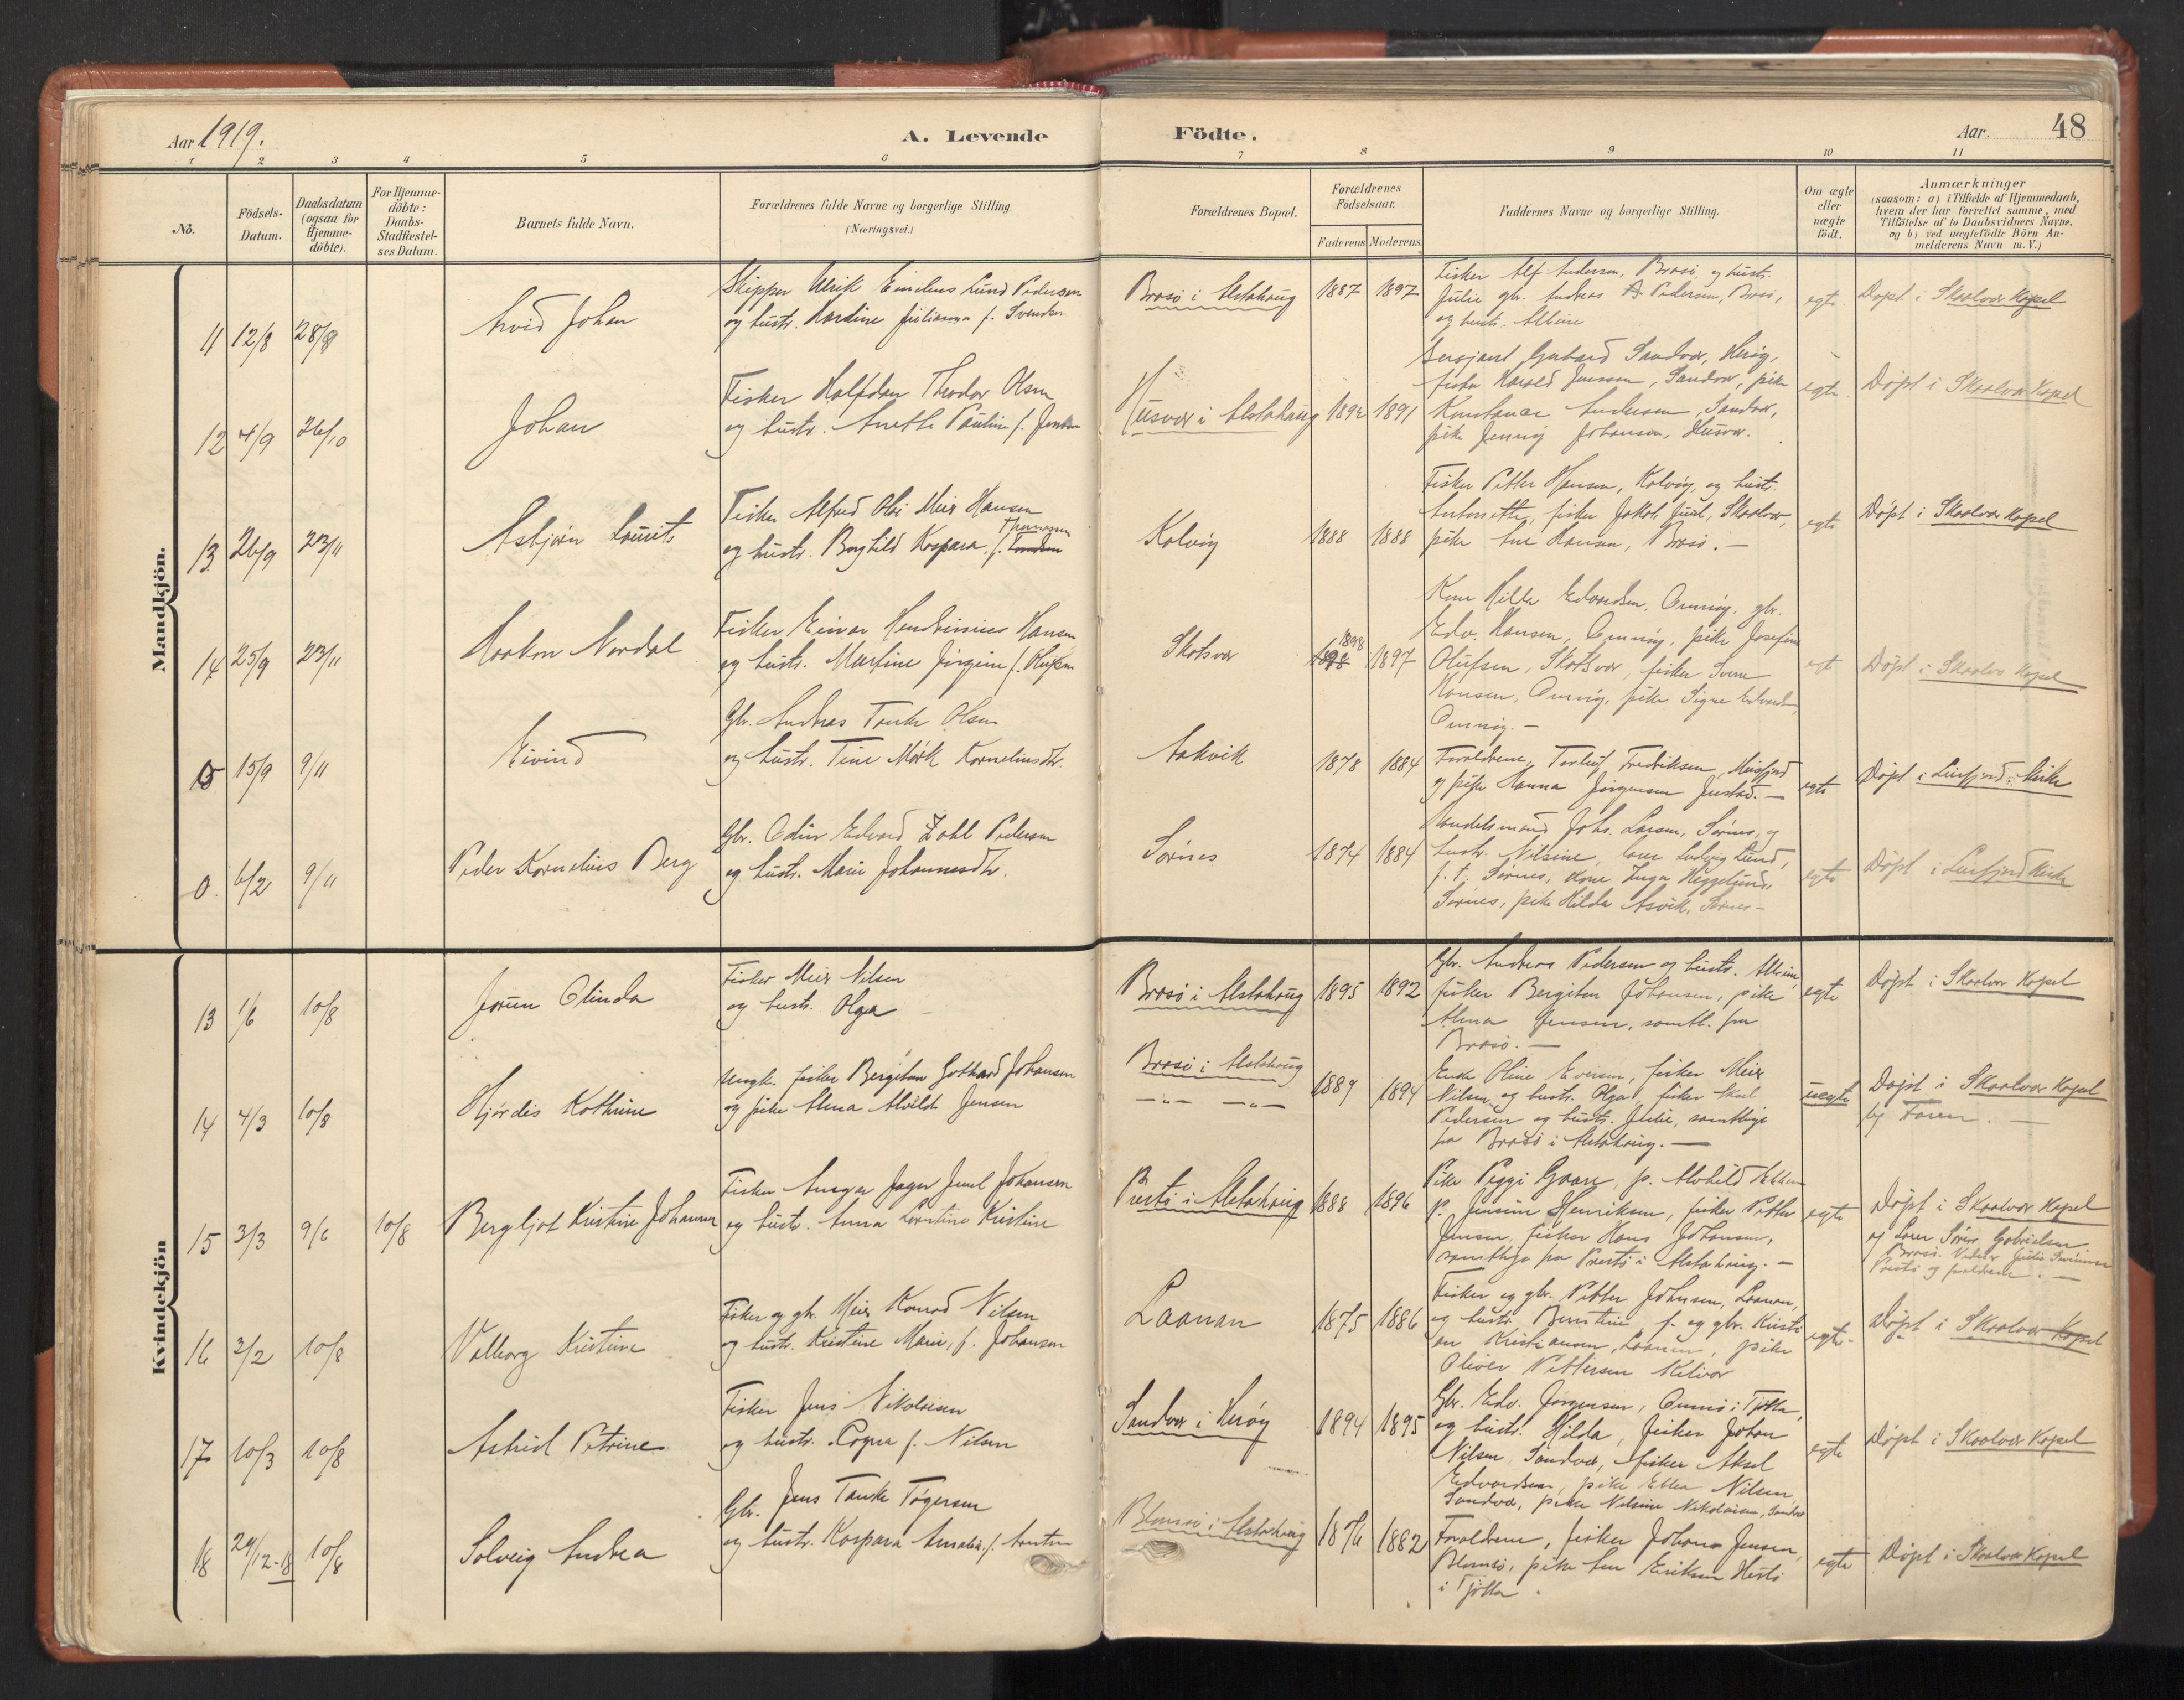 Aar 1919.
A. Levende
Födte.
Aar.
48
1 2 3 4 5 6 7 8 9 10 11
No.
Födsels-
Datum.
Daabsdatum
(ogsaa for
Hjemme-
döbte).
For Hjemme-
döbte:
Daabs-
Stadfæstel-
ses Datum.
Barnets fulde Navn.
Forældrenes fulde Navne og borgerlige Stilling.
(Næringsvei.)
Forældrenes Bopæl.
Forældrenes
Födselsaar.
Faderens
Moderens.
Faddernes Navne og borgerlige Stilling.
Om ægte
eller
uægte
födt.
Anmærkninger
(saasom: a) i Tilfælde af Hjemmedaab,
hvem der har forrettet samme, med
Tilföielse af to Daabsvidners Navne,
og b) ved uægtefödte Börn An-
melderens Navn m. V.)
Mandkjön.
11 12/8 28/9
Arvid Johan
Skipper Ulrik Emilius Lund Pedersen
og hustr. Hardine Julianna f. Svendsen
Brasø i Alstahaug
1887 1897
Fisker Alf Andersen, Brasø, og hustr.
Julie gbr. Andreas Pedersen, Brasø,
og hustr. Albine
egte
Døpt i Skaalvær Kapel
12 4/9 26/10
Johan
Fisker Halfdan Theodor Olsen
og hustr. Anette Pauline f. Jensen
Husvær i Alstahaug
1892 1891
Sersjant Gerhard Sandvær, Herøy,
fisker Harald Jensen, Sandvær, pike
Konstanse Andersen, Sandvær,
pike Jenny Johansen, Husvær.
egte
Døpt i Skaalvær Kapel
13. 26/9 23/11
Asbjørn Laurits
Fisker Alfred Olai Meier Hansen
og hustr. Borghild Kaspara, f. Thomassen
Kalvøy
1888 1888
Fisker Petter Hansen, Kalvøy, og hustr.
Antonette, fisker Jakob Juul, Skaalvær,
pike Ane Hansen, Brasø.—
egte
Døpt i Skaalvær Kapel
14 25/9 23/11
Haakon Nordal
Fisker Einar Hendrinius Hansen
og hustr. Martine Jørgine f. Olufsen
Skotsvær
1898 1897
Kone Hilda Edvardsen, Omnøy, gbr.
Edv. Hansen, Omnøy, pike Josefine
Olufsen, Skotsvær, fisker Sverre
Hansen, Omnøy, pike Signe Edvardsen,
Omnøy.—
egt
Døpt i Skaalvær Kapel
15 15/9 9/11
Eivind
Gbr. Andreas Tanke Olsen
og hustr. Tine Mørk Korneliusdtr.
Aakvik
1878 1884
Forældrene, Torleif Fredriksen, Meisfjord
og pike Hanna Jørgensen Justad.—
egte
Døpt i Leirfjord Kirke
0. 6/2 9/11
Peder Kornelius Berg
Gbr. Odin Edvard Zahl Pedersen
og hustr. Marie Johannesdtr.
Sørnes
1874 1884
Handelsmand Johs. Larsen, Sørnes, og
hustr. Nilsine, Ludvig Lund,
f. t. Sørnes, kone Inga Heggelund,
Sørnes, pike Hilda Asvik, Sørnes—
egte
Døpt i Leirfjord Kirke
Kvindekjön
13 1/6 10/8
Jorun Olinda
Fisker Meier Nilsen
og hustr. Olga —
Brasø i Alstahaug
1895 1892
Gbr. Andreas Pedersen og hustr. Albine,
fisker Bergiton Johansen, pike
Alma Jensen, samtl. fra
Brasø.—
egte
Døpt i Skaalvær Kapel
14 4/3 10/8
Hjørdis Kathrine
Ungk. fisker Bergiton Gothard Johansen
og pike Alma Alvilde Jensen
Brasø i Alstahaug
—"— —"—
1889 1894
Enke Oline Eversen, fisker Meier
Nilsen og hustr. Olga, fisker
Pedersen og hustr. Julie, samtlige
fra Brasø i Alstahaug.—
uegte
Døpt i Skaalvær Kapel
15 3/3 9/6 10/8
Bergljot Kristine Johansen
Fisker Ansgar Jager Juul Johansen
og hustr. Anna Lorentine Kristine
Prestø i Alstahaug
1888 1896
Pike Peggi Gaare, p. Alvhild
p. Jensine Henriksen, fisker Petter
Jensen, fisker Hans Johansen,
samtlige fra Prestø i Alstahaug.—
egte
Døpt i Skaalvær Kapel
af Lærer Gabrielsen
Brasø. Vidner Julie
Prestø og forældrene.—
16 2/2 10/8
Valborg Kristine
Fisker og gbr. Meier Konrad Nilsen
og hustr. Kristine Marie, f. Johansen
Laanan
1875 1886
Fisker og gbr. Petter Johnsen, Laanan,
og hustr. Berntine f. og gbr. Kristi-
an Kristiansen, Laanan, pike
Oliver Pettersen
egte
Døpt i Skaalvær Kapel
17 10/3 10/8
Astrid Petrine
Fisker Jens Nikolaisen
og hustr. Ragna f. Nilsen
Sandvær i Herøy
1894 1895
Gbr. Edv. Jørgensen, Omnø i Tjøtta,
og hustr. Hilda, fisker Johan
Nilsen, Sandvær, fisker Aksel
Edvardsen, pike Ebba Nilsen,
Sandvær, pike Nilsine Nikolaisen, Sandvær
egte
Døpt i Skaalvær Kapel
18 29/12-18 10/8
Solveig Andrea
Gbr. Jens Tanke Tøgersen
og hustr. Kaspara Amalia f. Arntsen
Blomsø i Alstahaug
1876 1882
Forældrene, fisker Johan Jensen,
Blomsø, pike Ane Eriksen
i Tjøtta.
egte
Døpt i Skaalvær Kapel